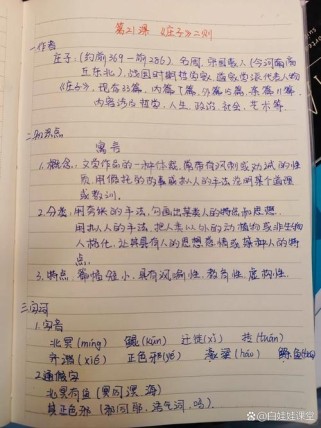 第21课 《庄子》二则
一.作者
庄子,(约前369—前286),名周,宋国蒙人(今河南商
丘东北),战国时期哲学家,道家学派代表人物
《庄子》,现存33篇,内篇7篇,外篇15篇,杂篇11篇,
内容涉及哲学、人生、政治、社会、艺术等
二.知识点
寓言
1.概念:文学作品的一种体裁,常带有讽刺或劝诫的性
质,用假托的故事或拟人的手法说明某个道理
或教训。
2.分类:用夸张的手法,勾画出某类人的特点和思想.
用拟人的手法,把人类以外的动植物或非生物
人格化,让其具有人的思想感情或某种人的特
点.
3.特点:篇幅短小,具有讽刺性、教育性、虚构性.
三.字词
1.字音
北冥(míng) 鲲(kūn) 迁徙(xǐ) 抟(tuán)
齐谐(xié) 正色邪(yé) 濠梁(háo)
2.通假字
北冥有鱼(冥同溟,海)
其正色邪(邪同耶,语气词,吗)
@白娃娃课堂